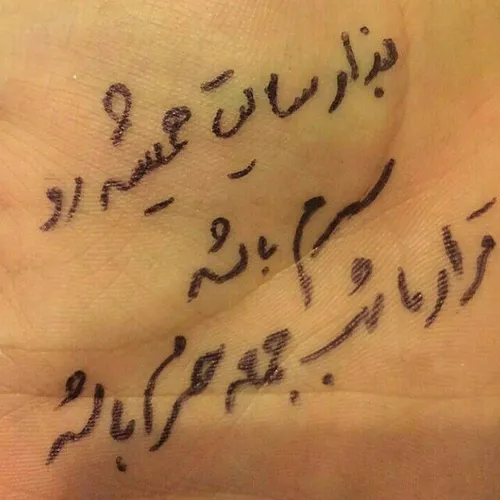 بذار سایت همیشه رو
سرم باشه
قرار ما شب جمعه حرم باشه